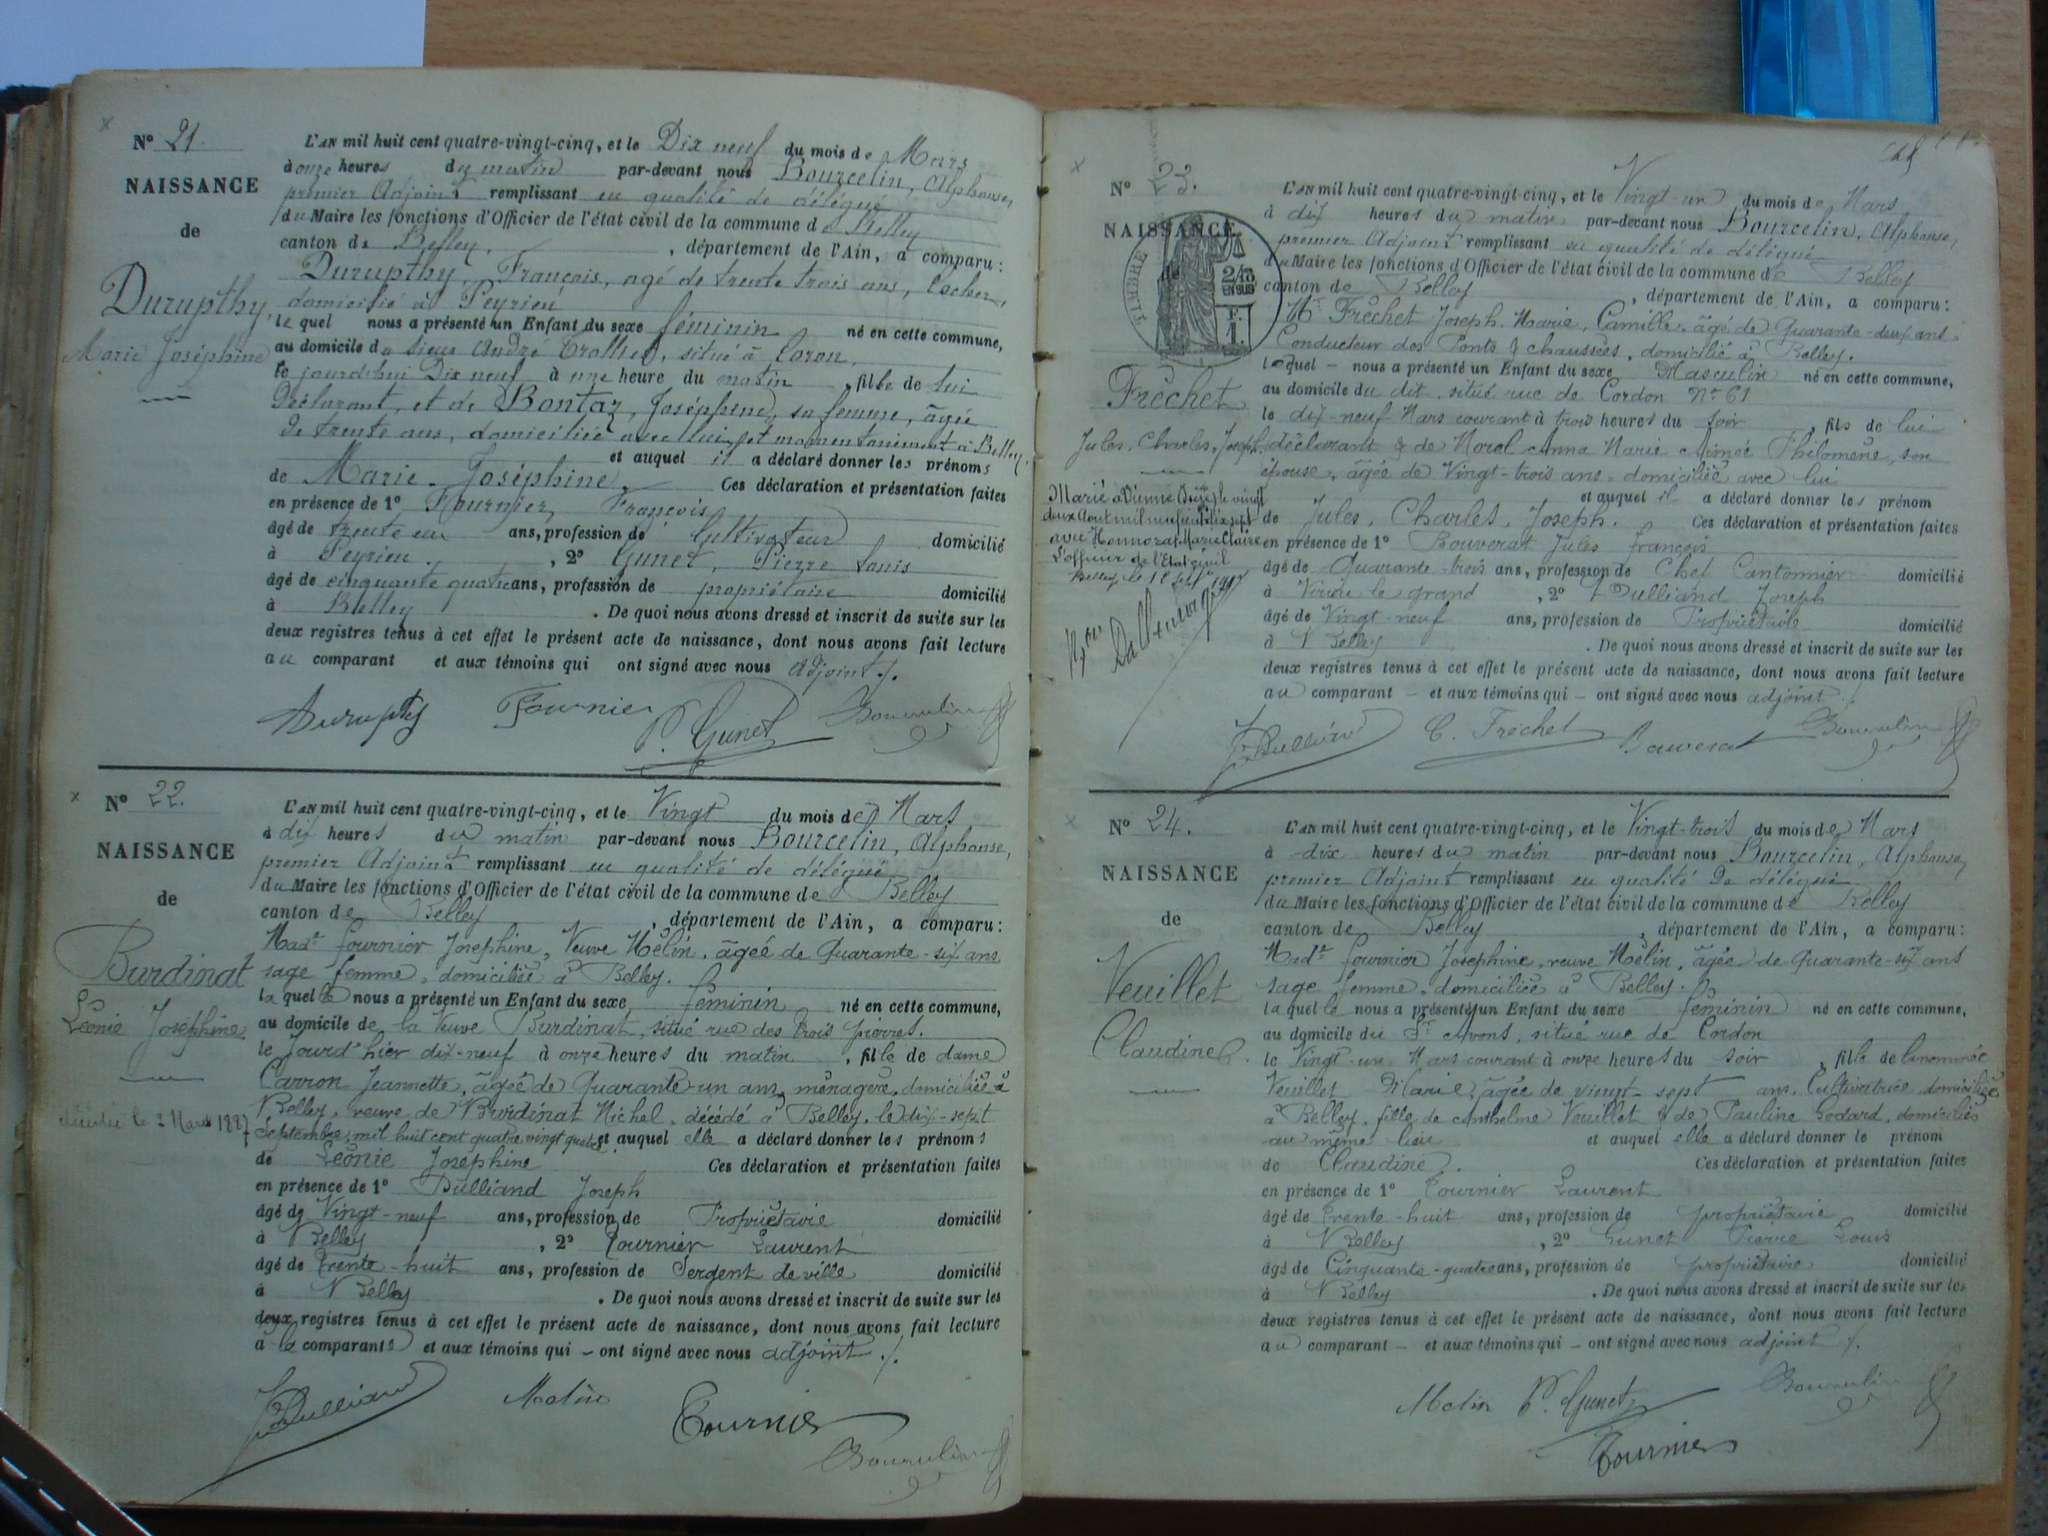 N° 21.
NAISSANCE
de
Durupthy,
Marie Joséphine
L'AN mil huit cent quatre-vingt-cinq, et le Dix neuf du mois de Mars
à onze heures du matin par-devant nous Bourcelin, Alphonse,
premier Adjoint remplissant en qualité de délégué
du Maire les fonctions d'Officier de l'état civil de la commune de Belley
canton de Belley, , département de l'Ain, a comparu:
Durupthy, François, agé de trente trois ans,
domicilié à Peyrieu
lequel nous a présenté un Enfant du sexe féminin né en cette commune,
au domicile du sieur André situé à Coron,
le jourd'hui Dix neuf à une heure du matin , fille de lui
Déclarant, et de Bontaz, Joséphine, sa femme, âgée
de trente ans, domiciliée avec lui, et momentanément à Belley,
et auquel il a déclaré donner les prénoms
de Marie-Joséphine. Ces déclaration et présentation faites
en présence de 1° Fournier, François
âgé de trente un ans, profession de Cultivateur domicilié
à Peyrieu. , 2° Gunet, Pierre Louis
âgé de cinquante quatre ans, profession de propriétaire domicilié
à Belley . De quoi nous avons dressé et inscrit de suite sur les
deux registres tenus à cet effet le présent acte de naissance, dont nous avons fait lecture
au comparant et aux témoins qui ont signé avec nous adjoint ./.
Durupthy Fournier P. Gunet Bourcelin
N° 22.
NAISSANCE
de
Burdinat
Léonie Joséphine
décédée le 2 Mars 1887
L'AN mil huit cent quatre-vingt-cinq, et le Vingt du mois de Mars
à dix heures du matin par-devant nous Bourcelin, Alphonse,
premier Adjoint remplissant en qualité de délégué
du Maire les fonctions d'Officier de l'état civil de la commune de Belley
canton de Belley , département de l'Ain, a comparu:
Made Fournier Josephine, Veuve Mélin, âgée de Quarante-six ans
sage femme, domiciliée à Belley.
laquelle nous a présenté un Enfant du sexe féminin né en cette commune,
au domicile de la Veuve Burdinat, situé rue des trois pierres.
le jourd'hier dix-neuf à onze heures du matin , fille de dame
Carron Jeannette, âgée de Quarante-un ans, ménagère, domiciliée à
Belley, veuve de Burdinat Michel, décédé à Belley, le dix-sept
Septembre, mil huit cent quatre vingt quatre et auquel elle a déclaré donner les prénoms
de Léonie Joséphine Ces déclaration et présentation faites
en présence de 1° Dulliand Joseph
âgé de Vingt-neuf ans, profession de Propriétaire domicilié
à Belley , 2° Tournier Laurent
âgé de trente-huit ans, profession de Sergent de ville domicilié
à Belley . De quoi nous avons dressé et inscrit de suite sur les
deux registres tenus à cet effet le présent acte de naissance, dont nous avons fait lecture
à la comparante et aux témoins qui – ont signé avec nous adjoint ./.
J. Dulliand Melin Tournier
Bourcelin
N° 23.
NAISSANCE
TIMBRE
2/10 EN SUS
F. 1.
Fréchet
Jules, Charles, Joseph
Marié à Vienne (Isère) le vingt
deux Août mil neuf cent dix sept
avec Honnorat Marie Claire
L'officier de l'Etat civil
Belley, le 1er Sept 1917
L'AN mil huit cent quatre-vingt-cinq, et le Vingt-un du mois de Mars
à dix heures du matin par-devant nous Bourcelin, Alphonse,
premier Adjoint remplissant en qualité de délégué
du Maire les fonctions d'Officier de l'état civil de la commune de Belley
canton de Belley , département de l'Ain, a comparu:
Mr Fréchet Joseph, Marie, Camille, âgé de Quarante-deux ans,
Conducteur des Ponts & chaussées, domicilié à Belley.
lequel – nous a présenté un Enfant du sexe Masculin né en cette commune,
au domicile du dit, situé rue de Cordon N° 61
le dix-neuf Mars courant à trois heures du soir , fils de lui
déclarant & de Morel Anna Marie Aimée Philomène, son
épouse, âgée de Vingt-trois ans, domiciliée avec lui
et auquel il a déclaré donner les prénom
de Jules, Charles, Joseph. Ces déclaration et présentation faites
en présence de 1° Bouverat Jules François
âgé de Quarante-trois ans, profession de Chef Cantonnier domicilié
à Virieu le grand , 2° Dulliand Joseph
âgé de Vingt-neuf ans, profession de Propriétaire domicilié
à Belley . De quoi nous avons dressé et inscrit de suite sur les
deux registres tenus à cet effet le présent acte de naissance, dont nous avons fait lecture
au comparant – et aux témoins qui – ont signé avec nous adjoint ./.
J. Dulliand C. Fréchet Bouverat Bourcelin
N° 24.
NAISSANCE
de
Veuillet
Claudine
L'AN mil huit cent quatre-vingt-cinq, et le Vingt-trois du mois de Mars
à dix heures du matin par-devant nous Bourcelin, Alphonse,
premier Adjoint remplissant en qualité de délégué
du Maire les fonctions d'Officier de l'état civil de la commune de Belley
canton de Belley , département de l'Ain, a comparu:
Made Fournier Josephine, veuve Mélin, âgée de Quarante-six ans
sage femme, domiciliée à Belley.
laquelle nous a présenté un Enfant du sexe féminin né en cette commune,
au domicile du Sr situé rue de Cordon
le Vingt-un Mars courant à onze heures du soir , fille de la nommée
Veuillet Marie, âgée de vingt-sept ans, Cultivatrice, domiciliée
à Belley, fille de Anthelme Veuillet & de Pauline Godard, domiciliés
au même lieu et auquel elle a déclaré donner le prénom
de Claudine. Ces déclaration et présentation faites
en présence de 1° Tournier Laurent
âgé de trente-huit ans, profession de propriétaire domicilié
à Belley , 2° Gunet Pierre Louis
âgé de Cinquante-quatre ans, profession de propriétaire domicilié
à Belley . De quoi nous avons dressé et inscrit de suite sur les
deux registres tenus à cet effet le présent acte de naissance, dont nous avons fait lecture
au comparant – et aux témoins qui – ont signé avec nous adjoint ./.
Melin P. Gunet Bourcelin
Tournier